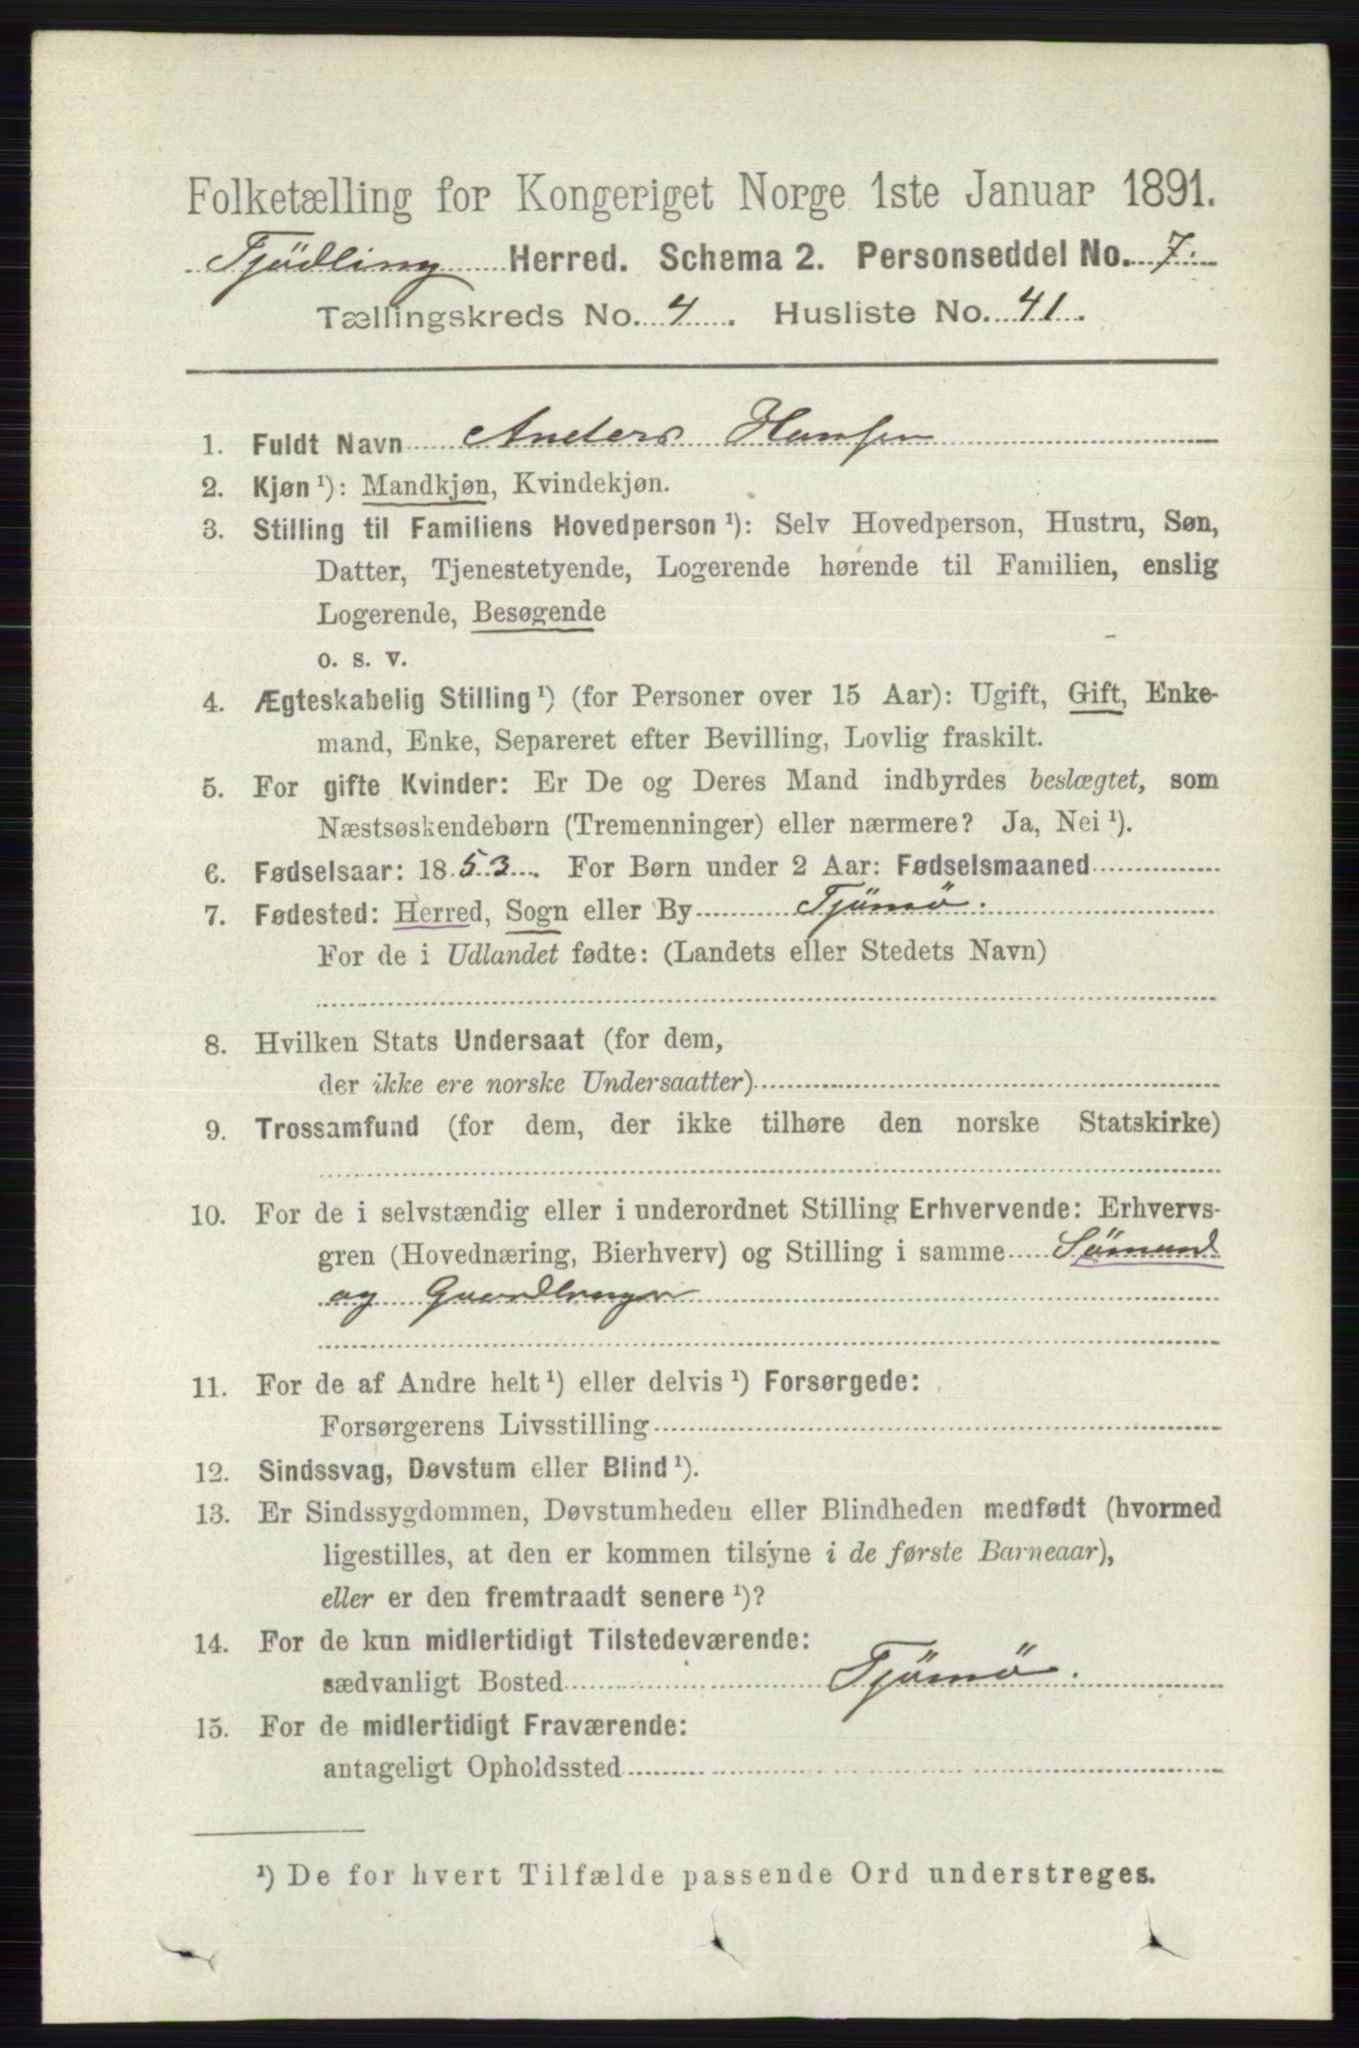 Folketælling for Kongeriget Norge 1ste Januar 1891.
Tjödling Herred. Schema 2. Personseddel No. 7.
Tællingskreds No. 4. Husliste No. 41.
1. Fuldt Navn Anders Hansen
2. Kjøn ¹): Mandkjøn, Kvindekjøn.
3. Stilling til Familiens Hovedperson ¹): Selv Hovedperson, Hustru, Søn,
Datter, Tjenestetyende, Logerende hørende til Familien, enslig
Logerende, Besøgende
o. s. v.
4. Ægteskabelig Stilling ¹) (for Personer over 15 Aar): Ugift, Gift, Enke-
mand, Enke, Separeret efter Bevilling, Lovlig fraskilt.
5. For gifte Kvinder: Er De og Deres Mand indbyrdes beslægtet, som
Næstsøskendebørn (Tremenninger) eller nærmere? Ja, Nei ¹).
6. Fødselsaar: 1853. For Børn under 2 Aar: Fødselsmaaned
7. Fødested: Herred, Sogn eller By Tjömö.
For de i Udlandet fødte: (Landets eller Stedets Navn)
8. Hvilken Stats Undersaat (for dem,
der ikke ere norske Undersaatter)
9. Trossamfund (for dem, der ikke tilhøre den norske Statskirke)
10. For de i selvstændig eller i underordnet Stilling Erhvervende: Erhvervs-
gren (Hovednæring, Bierhverv) og Stilling i samme Sömand
og Gaardbruger
11. For de af Andre helt ¹) eller delvis ¹) Forsørgede:
Forsørgerens Livsstilling
12. Sindssvag, Døvstum eller Blind ¹).
13. Er Sindssygdommen, Døvstumheden eller Blindheden medfødt (hvormed
ligestilles, at den er kommen tilsyne i de første Barneaar),
eller er den fremtraadt senere ¹)?
14. For de kun midlertidigt Tilstedeværende:
sædvanligt Bosted Tjömö.
15. For de midlertidigt Fraværende:
antageligt Opholdssted
¹) De for hvert Tilfælde passende Ord understreges.